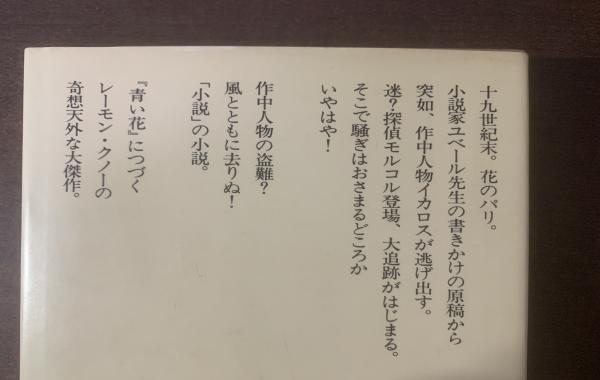 十九世紀末。花のパリ。
小説家ユベール先生の書きかけの原稿から
突如、作中人物イカロスが逃げ出す。
迷?探偵モルコル登場、大追跡がはじまる。
そこで騒ぎはおさまるどころか
いやはや!
作中人物の盗難?
風とともに去りぬ!
「小説」の小説。
『青い花』につづく
レーモン・クノーの
奇想天外な大傑作。